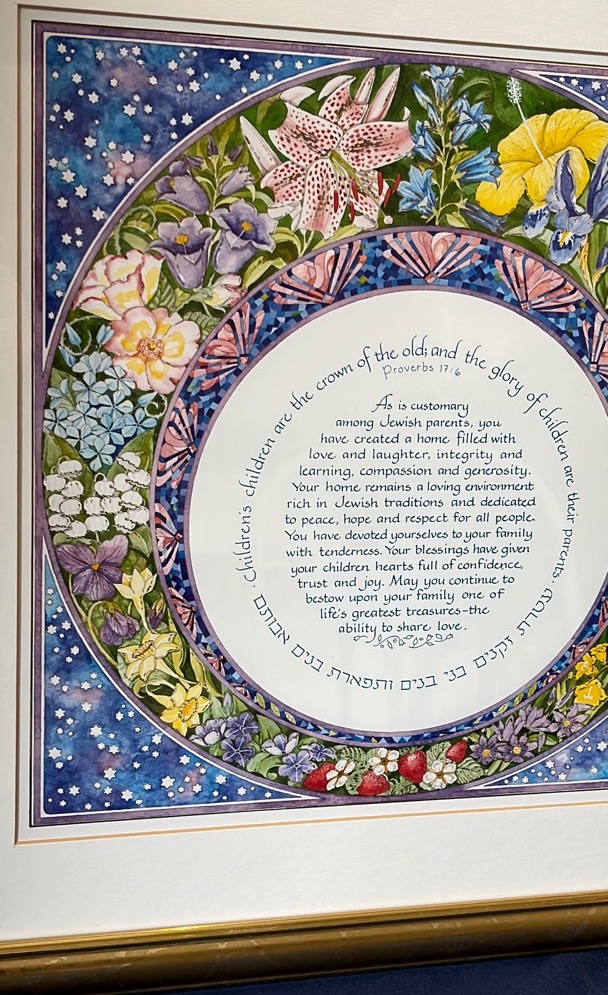 Children's children are the crown of the old; and the glory of children are their parents.
Proverbs 17:6
As is customary
among Jewish parents, you
have created a home filled with
love and laughter, integrity and
learning, compassion and generosity.
Your home remains a loving environment
rich in Jewish traditions and dedicated
to peace, hope and respect for all people.
You have devoted yourselves to your family
with tenderness. Your blessings have given
your children hearts full of confidence,
trust and joy. May you continue to
bestow upon your family one of
life's greatest treasures-the
ability to share love.
עטרת זקנים בני בנים ותפארת בנים אבותם